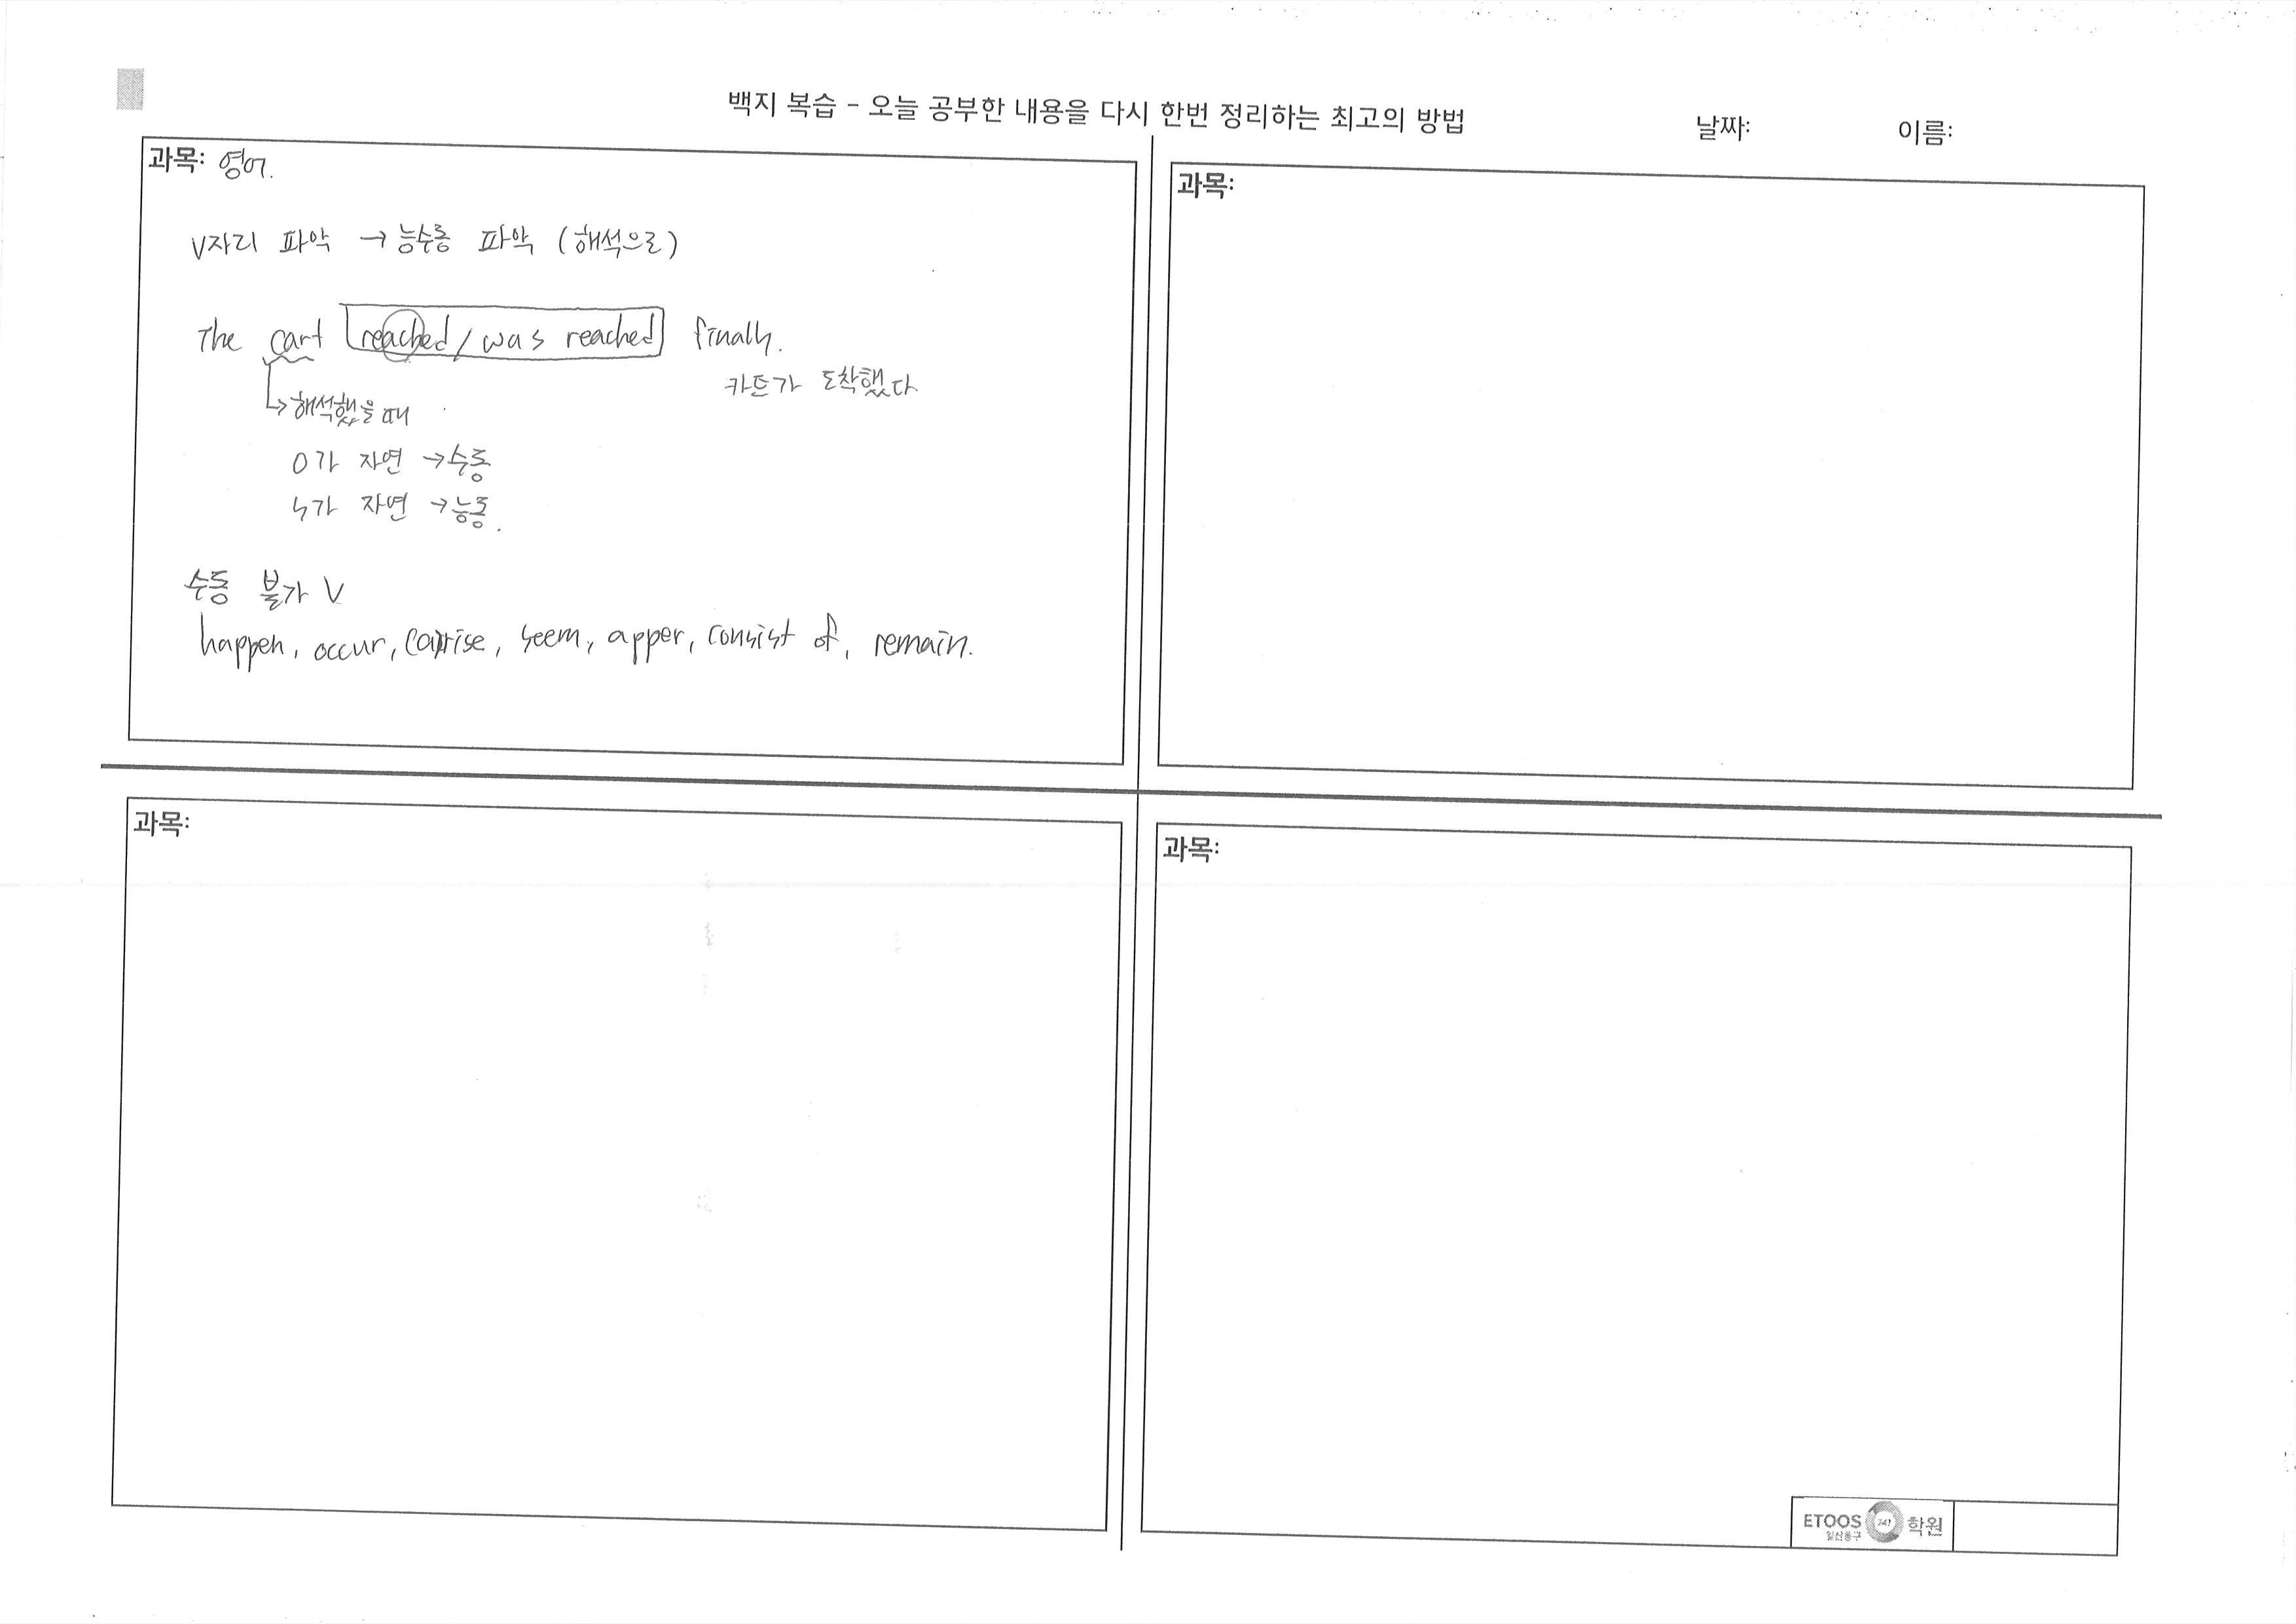 백지 복습 - 오늘 공부한 내용을 다시 한번 정리하는 최고의 방법
날짜: 이름:
과목: 영어.
V자리 파악 → 능수동 파악 (해석으로)
The cart reached / was reached finally.
카트가 도착했다
↳ 해석했을 때
O가 자연 → 수동
S가 자연 → 능동.
수동 불가 V
happen, occur, (a)rise, seem, apper, consist of, remain.
과목:
과목:
과목:
ETOOS 247 학원
일산동구